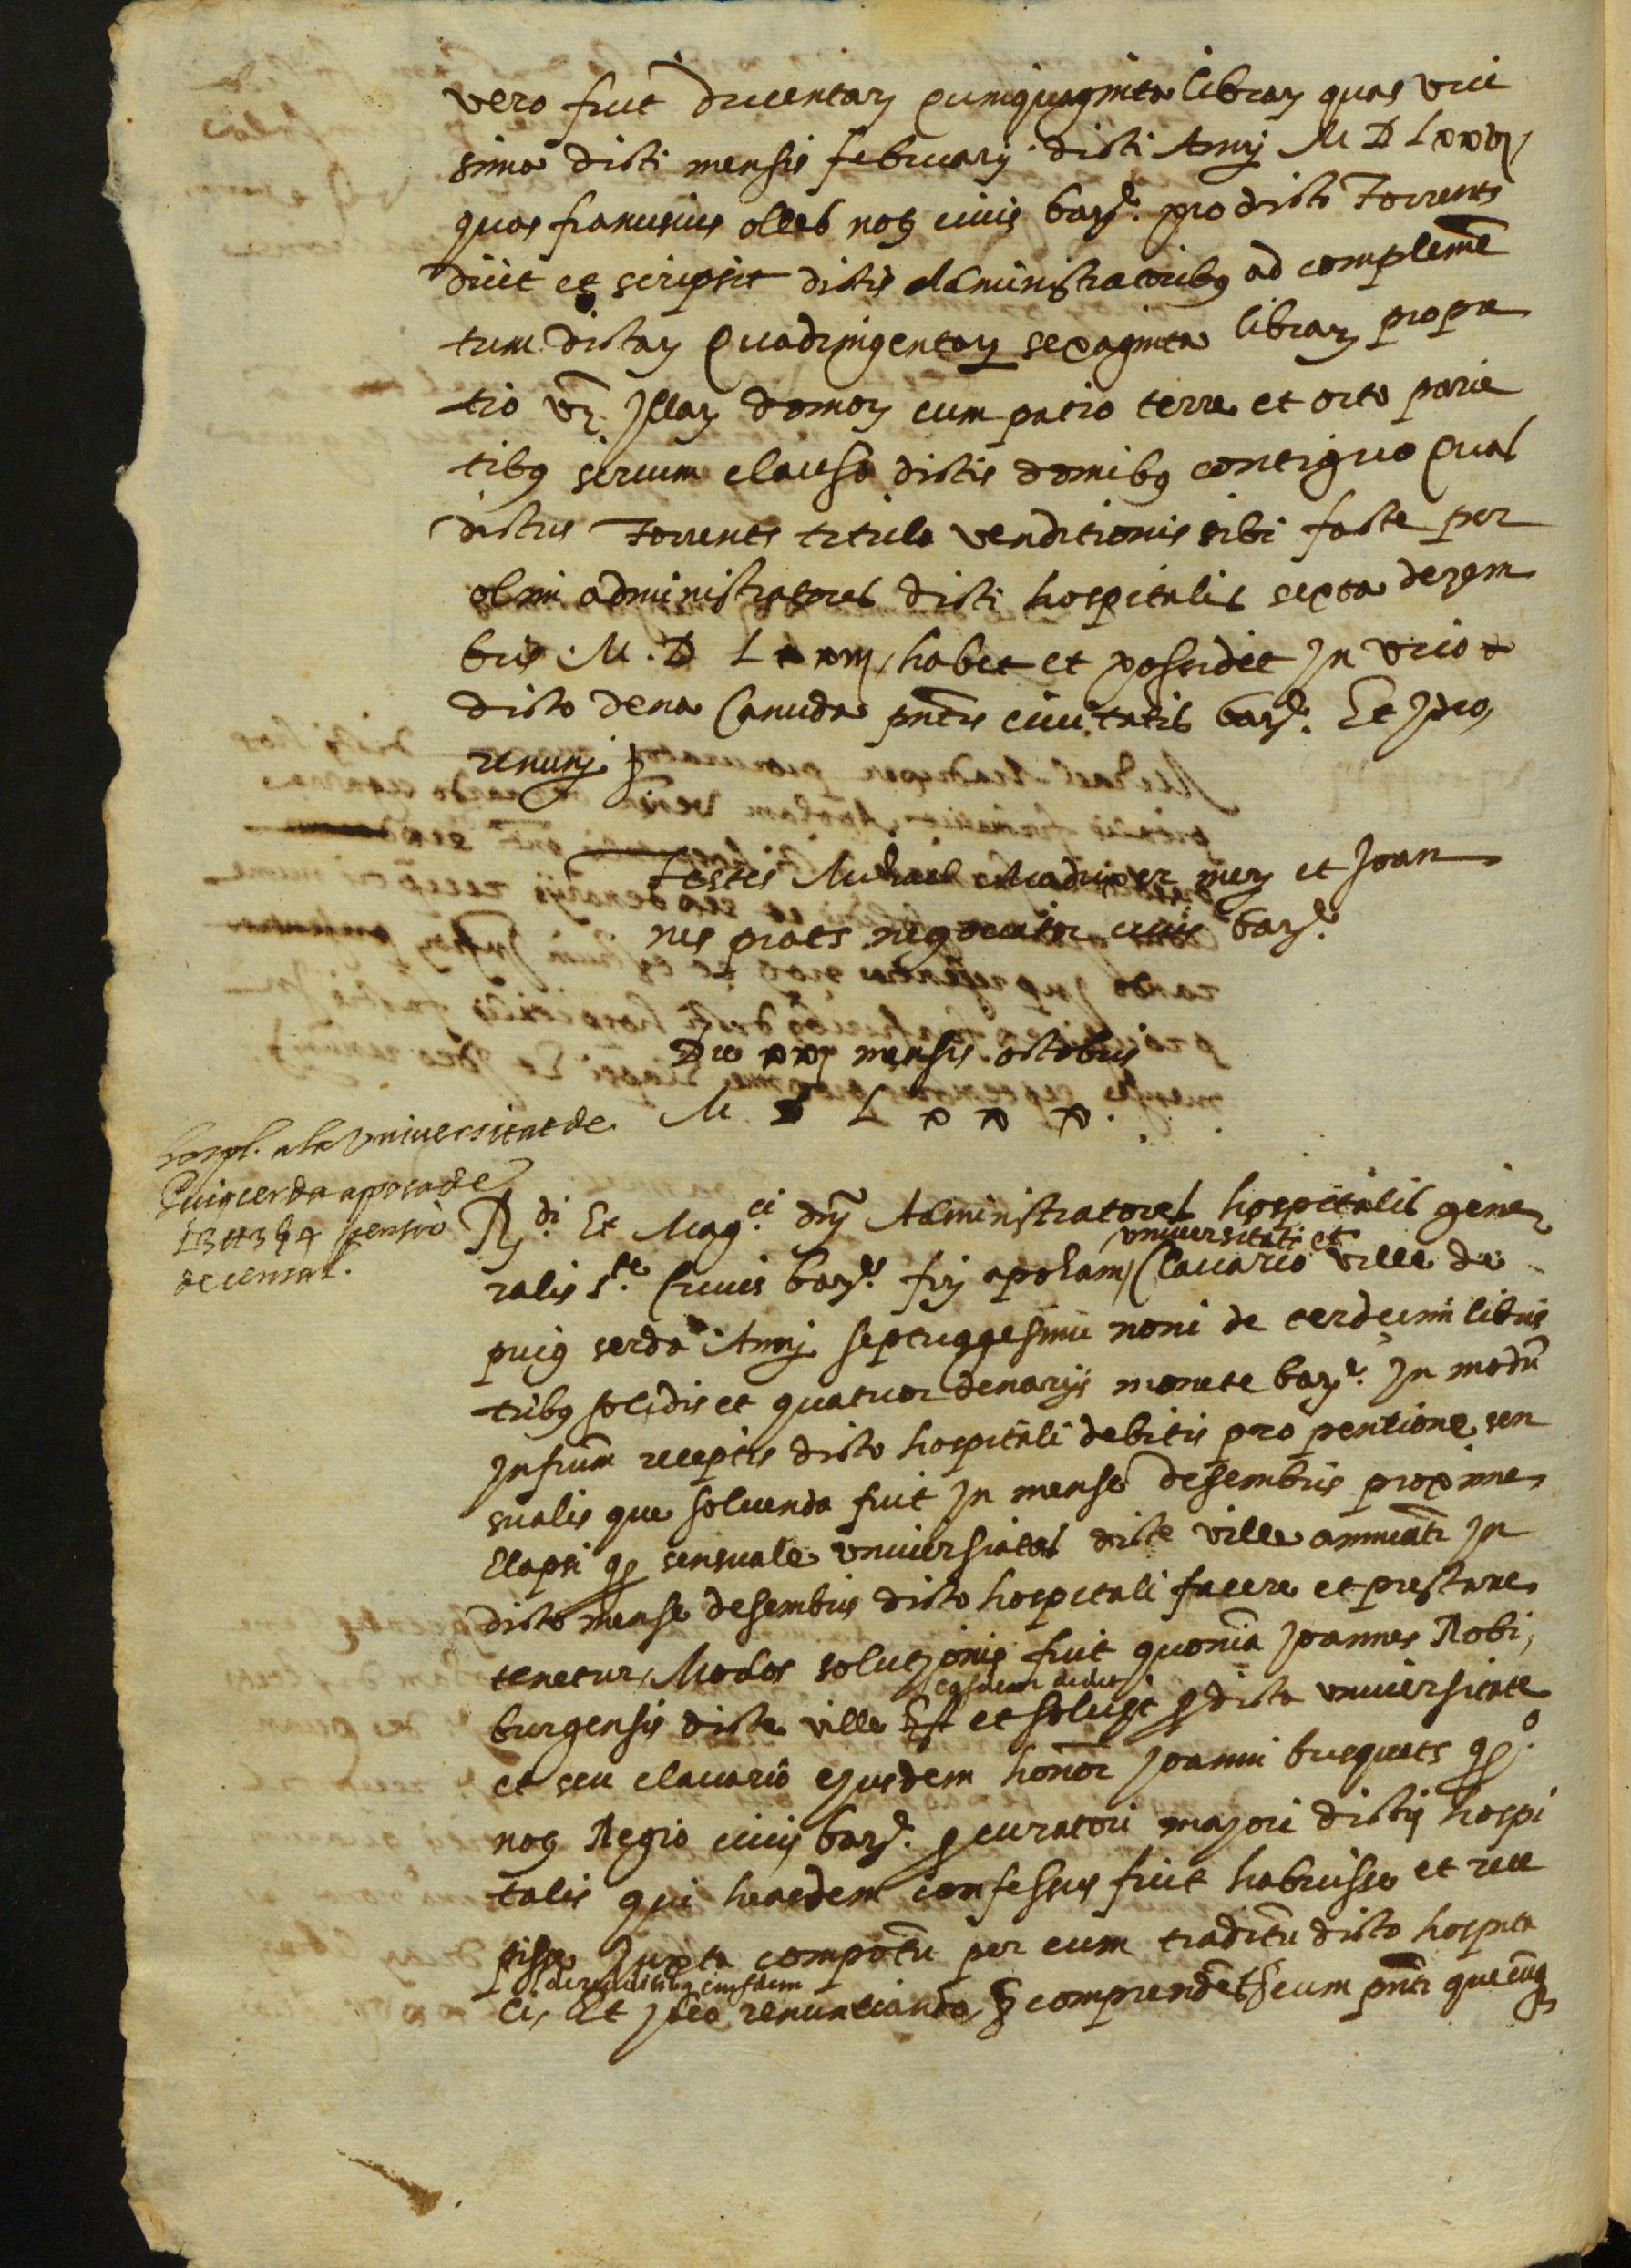 vero fuit ducentarum quinquaginta librarum quas vice
sima dicti mensis februarij dicti Anny M D Lxxvj,
quas franciscus olleb notus civis barne. pro dicto Torrents
dicit et scripsit dictis Administratoribus ad complemē
tum dictarum Quadringentarum sexaginta librarum pro pa
tio vz. Jllarum domorum cum patio terre et orto parie
tibus sircum clauso dictis domibus contiguo Quas
dictus Torrents titulo venditionis sibi facte per
olim administratores dicti hospitalis sexta dezem
bris M. D Lxxvj, habet et possidet jn vico
dicto dena Canuda pntis civitatis barne. Et Jdeo,
renunj &
Testes Michael Madriper merz et Joan
nes prats negociator cives barne.
Die xxj mensis octobris
M D L x x x.
hospl. a la Universitat de
Puigcerda apoca de
13 ll 3 s 4 pensio
de censal.
Rdi. Et Magci. dnj Administratores hospitalis gene
ralis Ste. Crucis barne. fij apocham, Clavario ville de
universitati et
puig serda Anny septuagesimi noni de terdecim libris
tribus solidis et quatuor denarijs monete barne. Jn modū
Jnfrūm receptis dicto hospitali debitis pro pentione sen
sualis que solvenda fuit Jn mense desembris proxime
Elapsi qz sensuale universitas dicte ville annuatī Jn
dicto mense desembris dicto hospitali facere et prestare
tenetur, Modos solutzionis fuit quoniā Joannes Robi,
easdem dedit
burgensis dicte ville Est et solvit p dicta universitate
et seu clavario ejusdem honor Joanni busquets
notus Regio civis barne. pcuratori majori dictis hospi
talis qui hasdem confessus fuit habuisse et rece
pisse Juxta compotū per eum traditū dicto hospita
de redditibus eiusdem
li, Et Jdeo renuntiando & comprendēt cum pnti quecūq